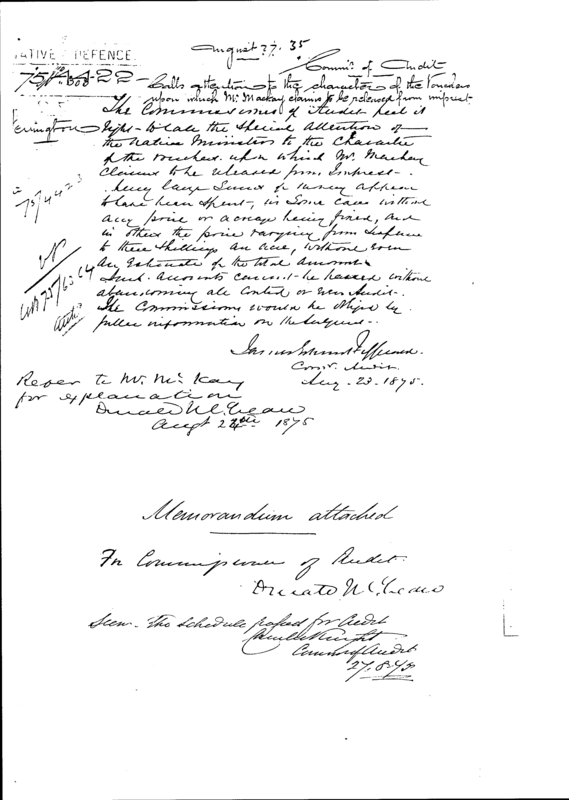 August 27. 35
NATIVE & DEFENCE
Commr. of Audit
75/4422 – Calls attention to the character of the Vouchers
upon which Mr. Mackay claims to be released from imprest
The Commissioners of Audit feel it
right to call the special attention of
the Native Minister to the character
of the vouchers upon which Mr. Mackay
claims to be released from Imprest.
very large sums of money appear
to have been spent, in some cases without
any price or acreage being fixed, and
in others the price varying from
to three shillings an acre, without even
an estimate of the total amount.
Such accounts cannot be passed without
abandoning all control or even Audit.
The Commissioners would be obliged by
fuller information on the subject.
James Edward FitzGerald
Comr. Audit
Aug. 23. 1875.
75/4423
Refer to Mr. McKay
for explanation
Donald McLean
Augt 24th 1875
Memorandum attached
For Commissioner of Audit
Donald McLean
Seen. The schedule passed for Audit
Charles Knight
Commr of Audit
27.8.75